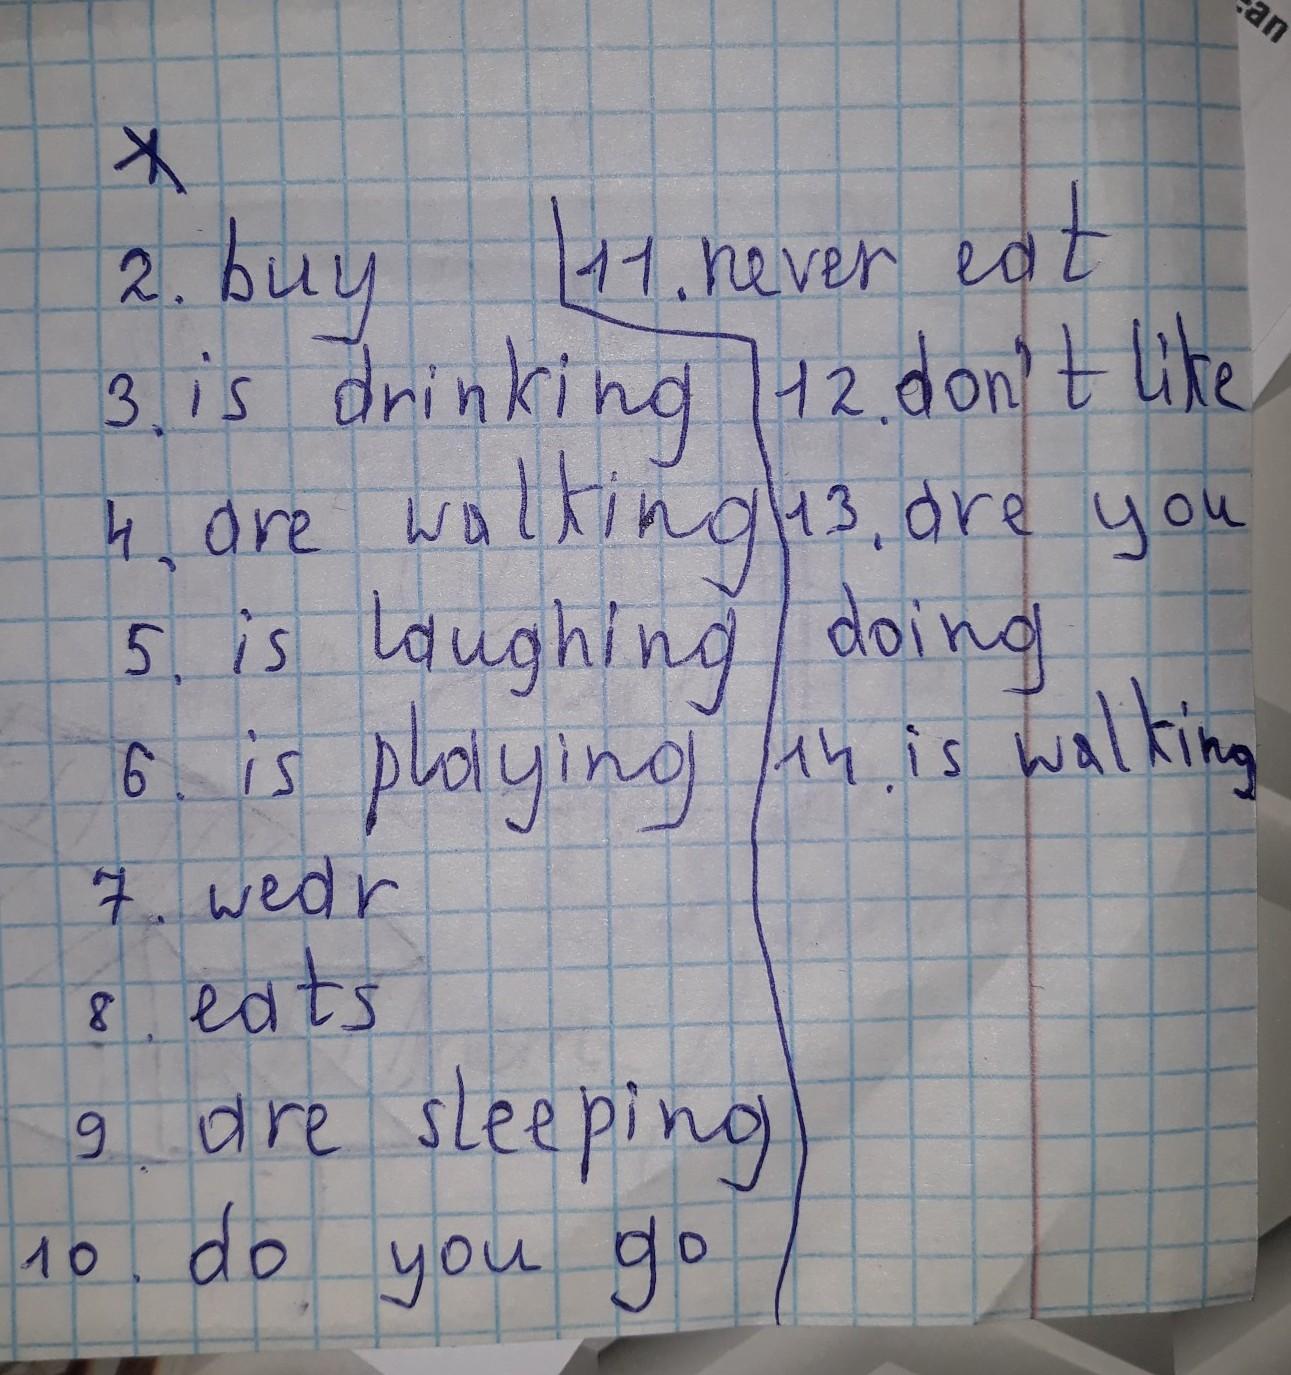 2. buy
3. is drinking
4. are walking
5. is laughing
6. is playing
7. wear
8. eats
9. are sleeping
10. do you go
11. never eat
12. don't like
13. are you
doing
14. is walking